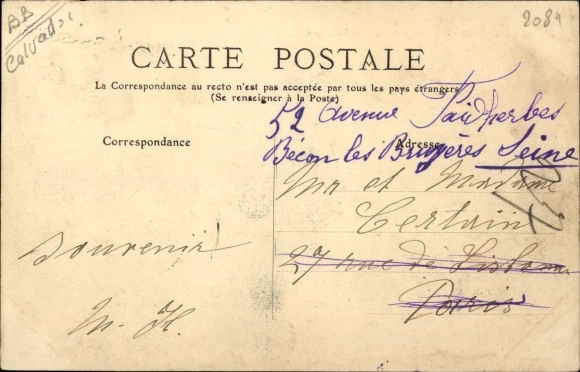 BB
Calvados.
2084
CARTE POSTALE
La Correspondance au recto n'est pas acceptée par tous les pays étrangers
(Se renseigner à la Poste)
52 avenue Faidherbes
Bécon les Bruyères Seine
Correspondance
Adresse
Mr et Madame
Certain
27 rue de Lisbonne
Paris
Souvenir
M. H.